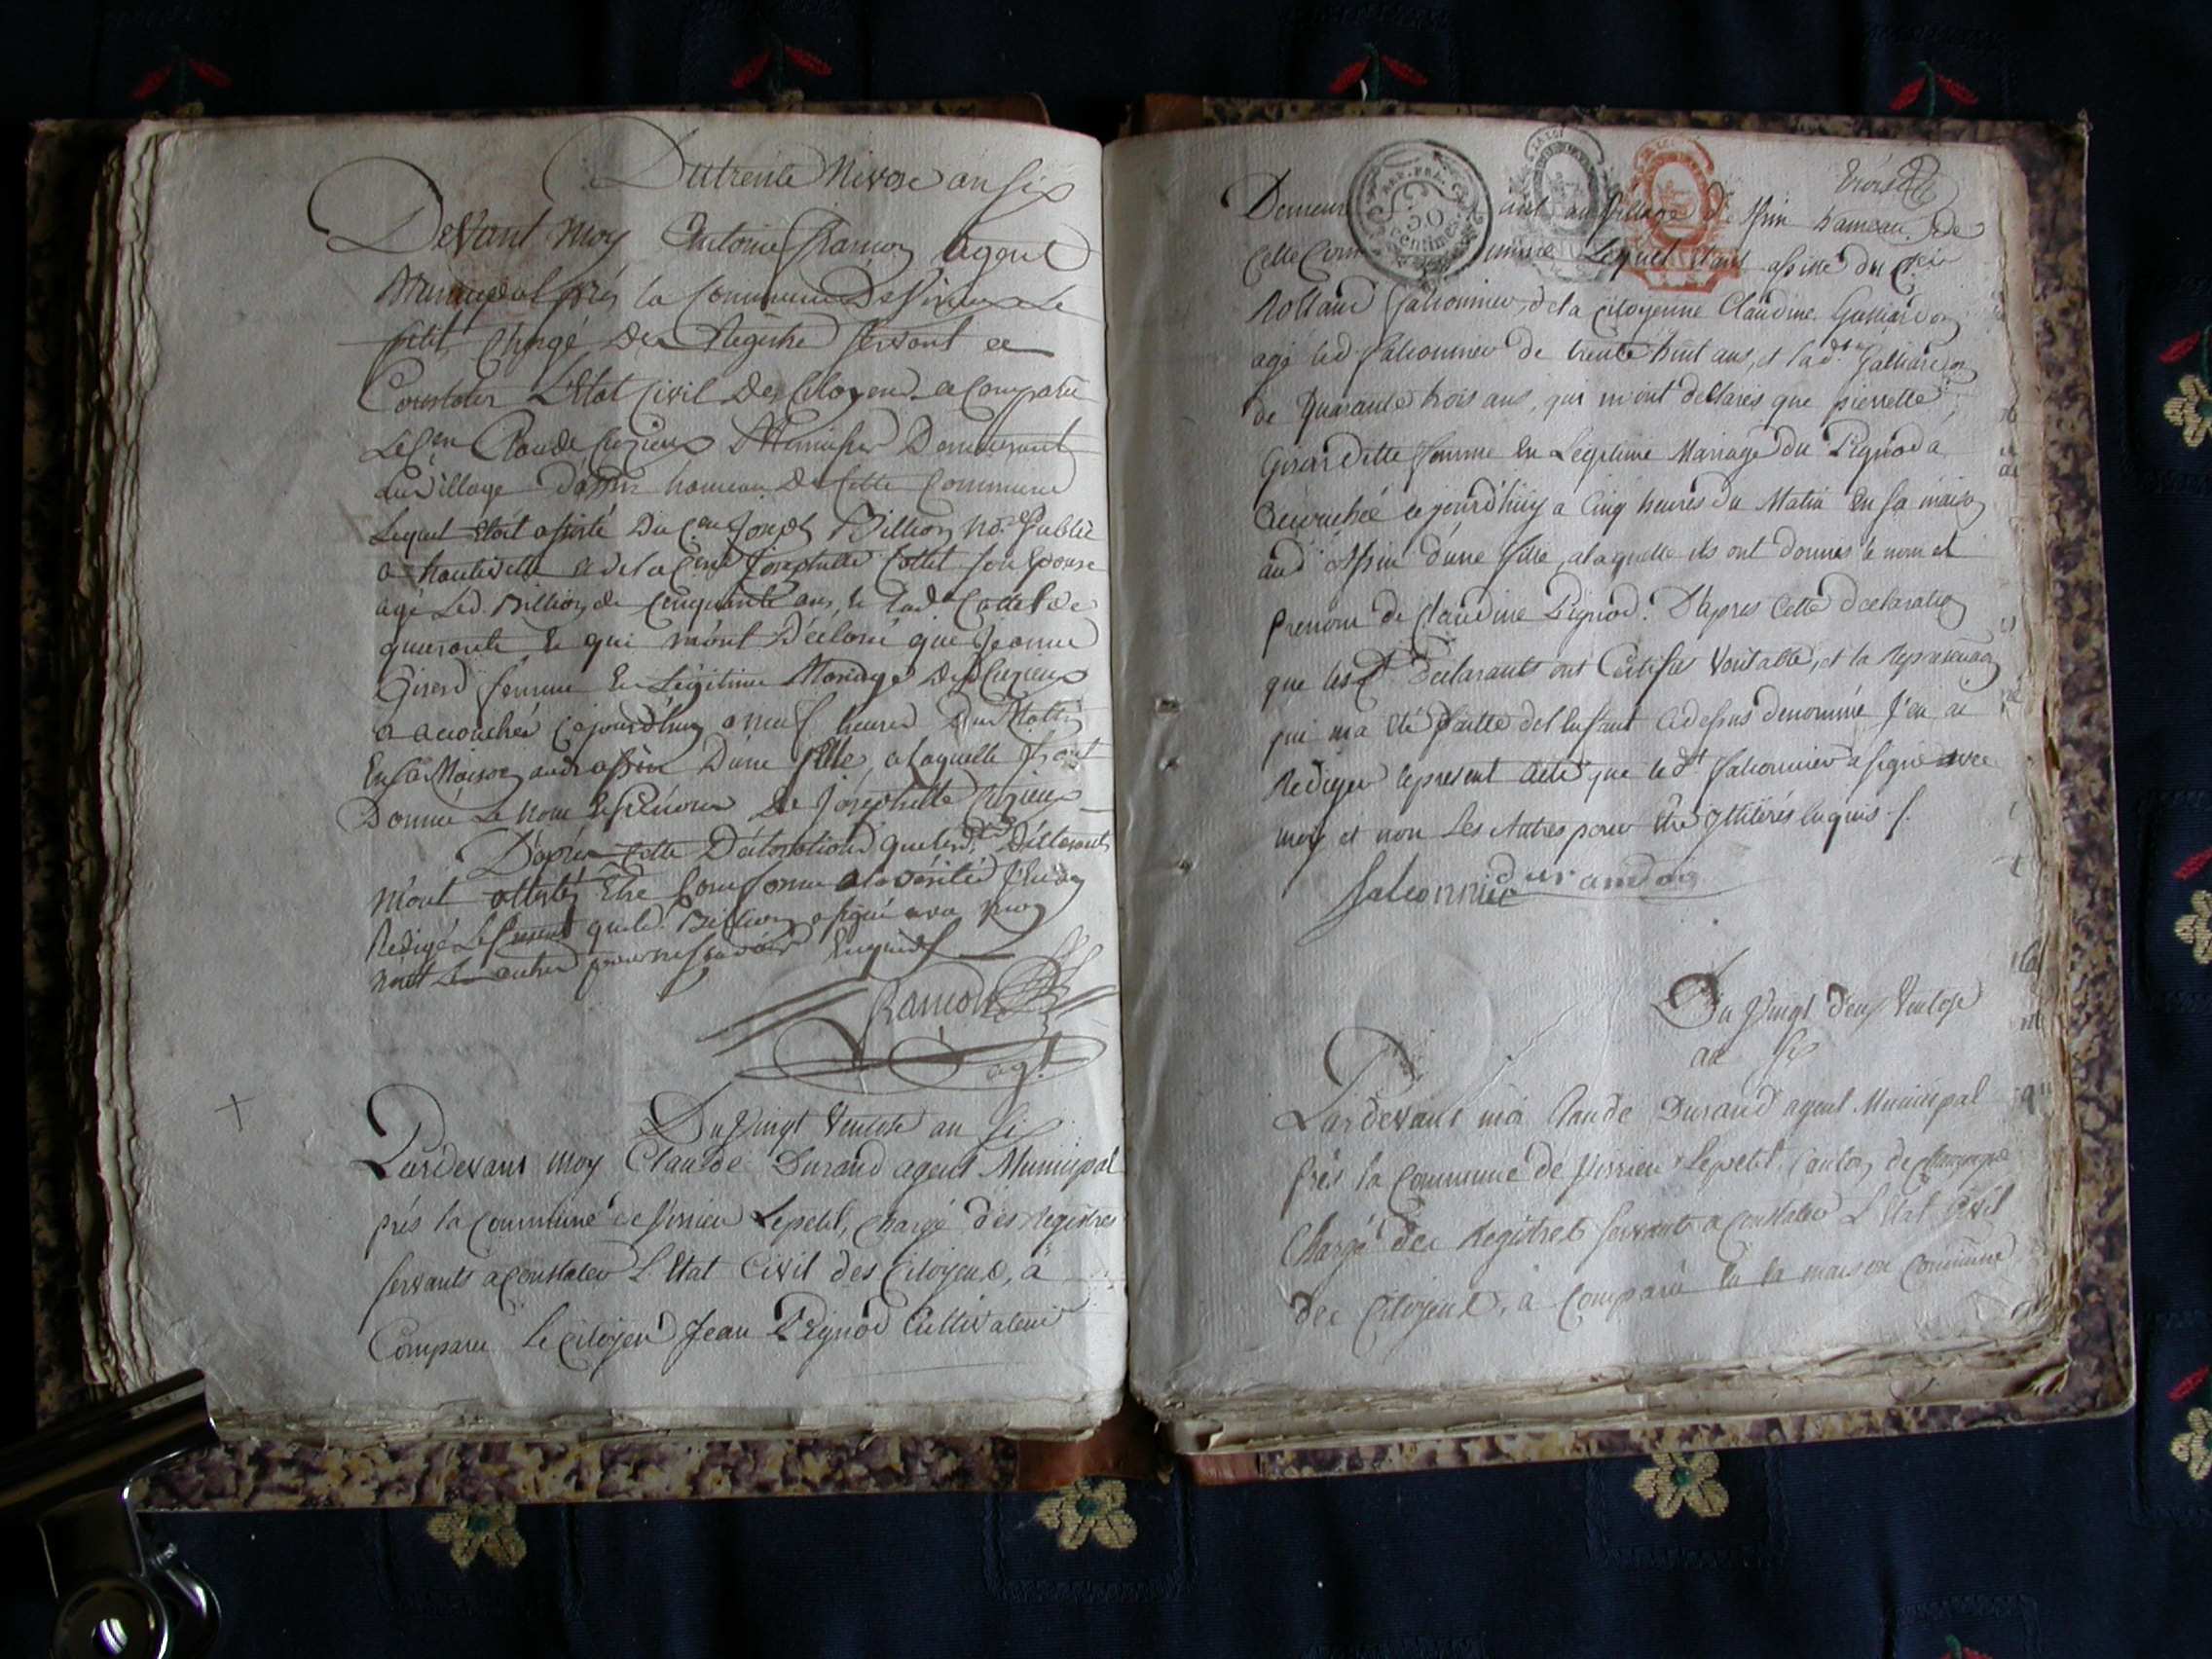 Du trente Nivose an six
Devant moy Antoine Ramon agent
Municipal près la Commune De Virieux le
petit, chargé Des Registre servant a
Constater L'Etat Civil Des Citoyens a comparu
Le Cen Claude Demeurant
au village d'assin hameau De Cette Commune
Lequel étoit assisté Du Cen Joseph Billion no.re Public
a hauteville et de la Cene Josephtte Collet son Epouse
agé Led. Billion de Cinquante ans, et Lad. Collet de
quarante et qui m'ont Déclaré que Jeanne
Girerd femme En Légitime Mariage Dud.
a accouchée cejourd'huy a neuf heures Du Matin
En sa Maison aud assin D'une fille, a laquelle ils ont
Donné Le nom et Prénom De Josephtte
D'après cette Déclaration que lesd. Déclarants
m'ont attesté Etre Conforme a la vérité J'en ay
Redigé Le present que led. Billion a signé avec moy
non Les autres pour ne scavoir Enquis
Ramon
agt
Du Vingt Ventose an Six
Pardevant moy Claude Durand agent Municipal
prés la Commune de Virieu Lepetit, chargé des Registres
servants a Constater L'Etat Civil des Citoyens, à
Comparu Le Citoyen Jean Pignod Cultivateur
REP. FRA.
50
centimes
LA LOI
Demeurant au Village d'assin hameau de
Cette Commune Lequel étant assisté du Cien
Rolland falconnier, de la Citoyenne Claudine Galliardon
agé led falconnier de trente huit ans, et lad.te Galliardon
de Quarante trois ans, qui m'ont déclarés que pierrette
Girardette femme En Légitime Mariage du Pignod a
accouchée cejourd'huy a Cinq heures du Matin En sa maison
aud Assin d'une fille, alaquelle ils ont donnés le nom et
prenom de Claudine Pignod. D'apres Cette declaration
que lesd Declarants ont Certifié Veritable, et la Representation
qui ma été faitte del Enfant cidessus denommé J'en ai
Rediger lepresent acte que led.t falconnier a signé avec
moy et non Les Autres pour Etre Illitérés Enquis
falconnier durand
Du Vingt deux Ventose
an Six
Pardevant moi Claude Durand agent Municipal
près la Commune de Virieu Lepetit, Canton de Champagne
Chargé des Registres servants a Constater L'Etat Civil
des Citoyens, à Comparu En la maison Commune